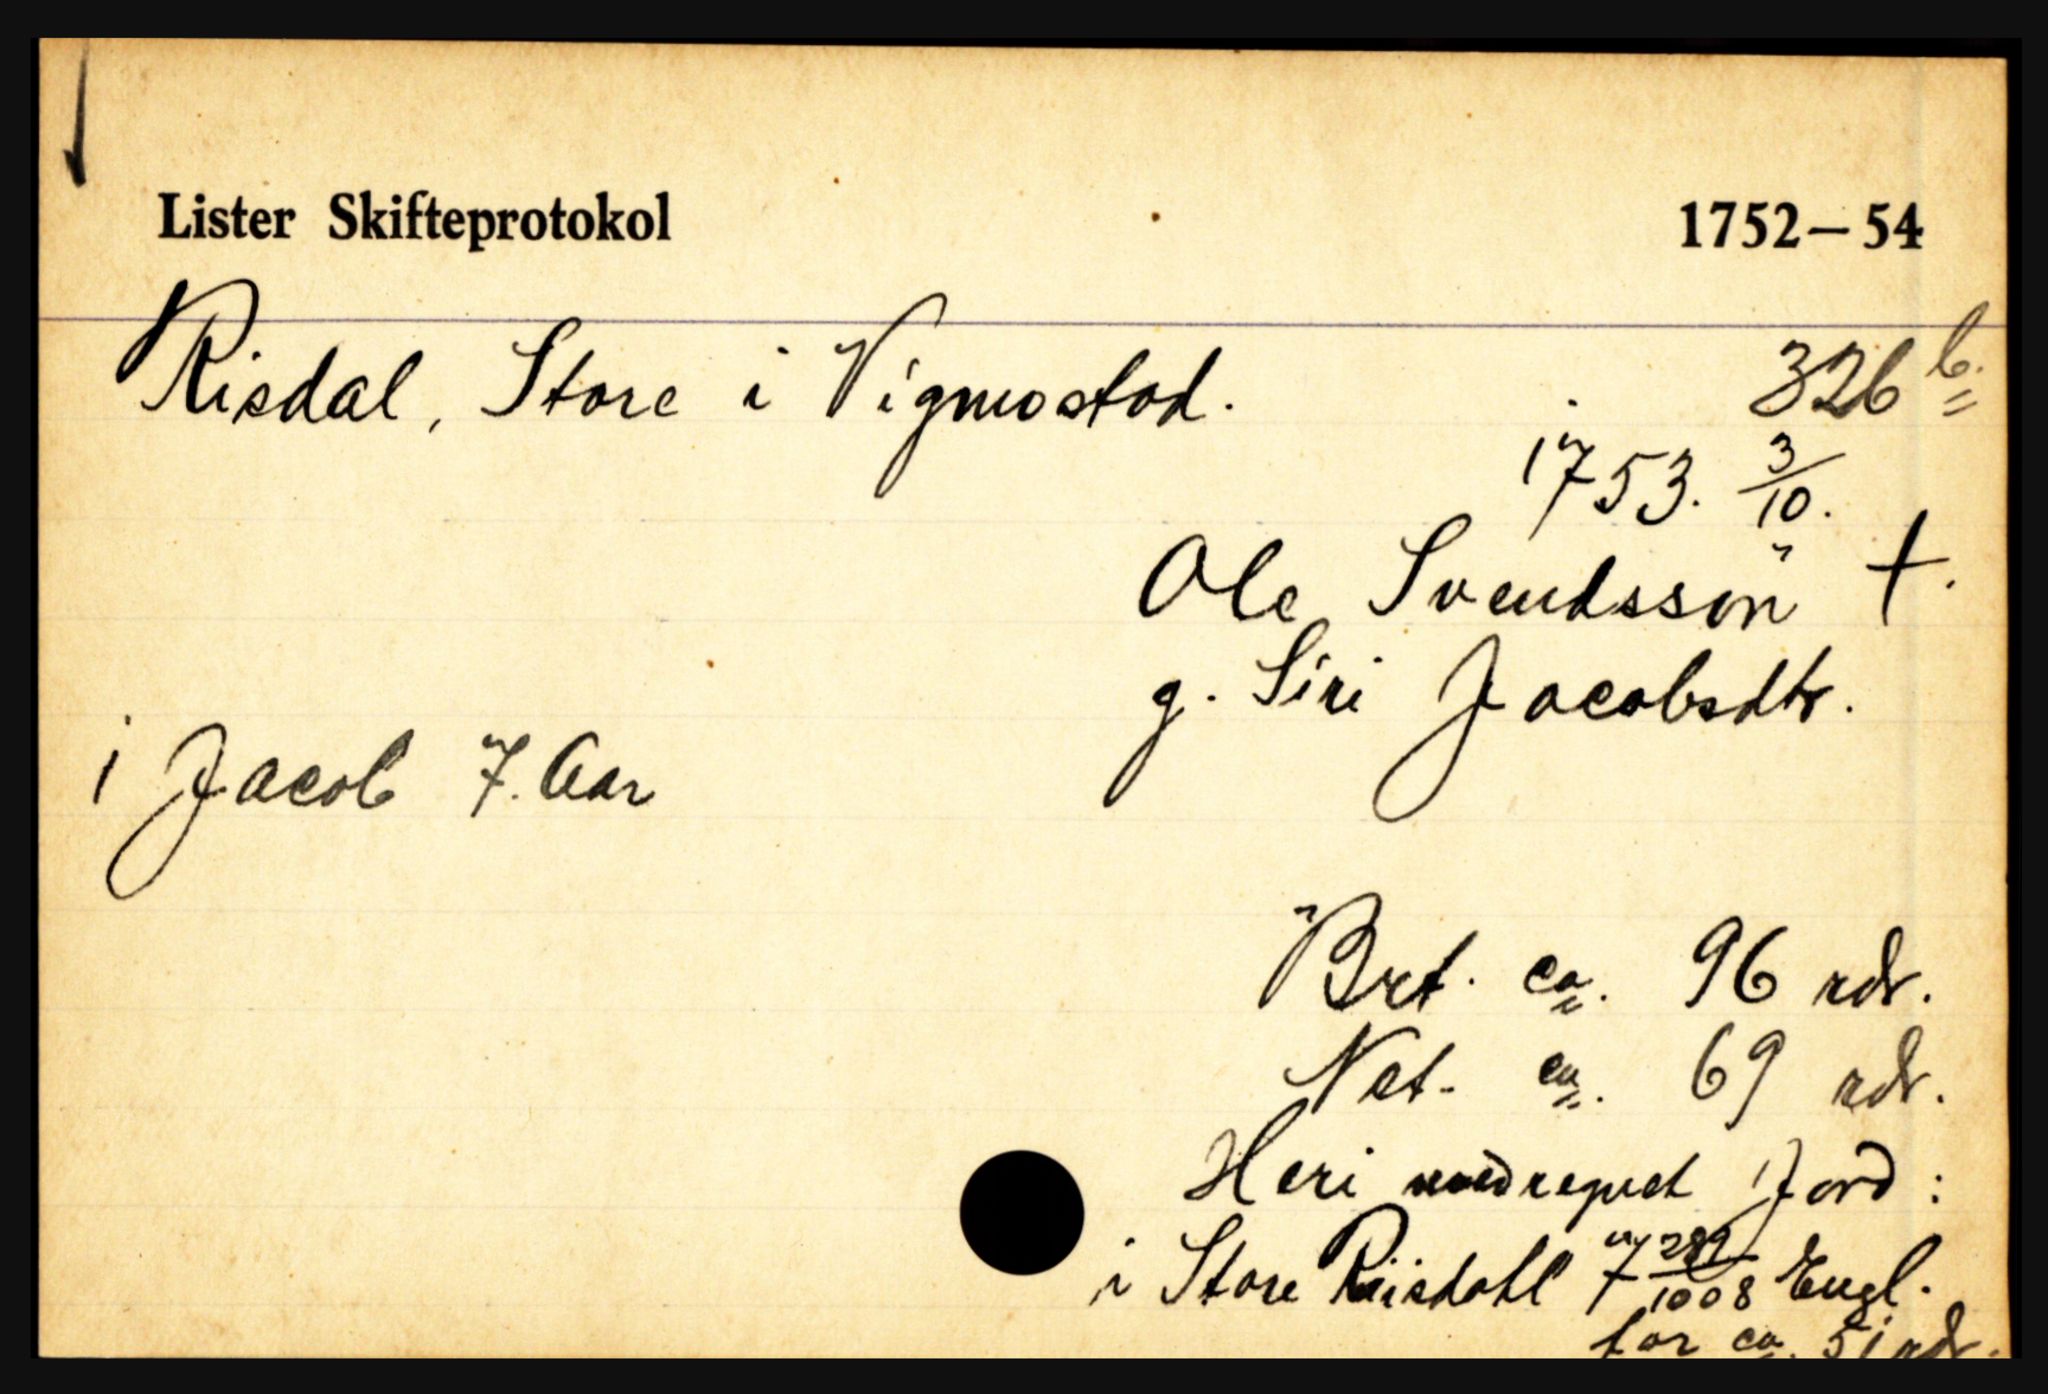 Lister Skifteprotokol 1752—54
Risdal, Store i Vigmostad. 326 b.
1753. 3/10.
Ole Svendssøn †.
g. Siri Jacobsdtr.
1 Jacob 7. Aar
Brt. ca. 96 rdr.
Net. ca. 69 rdr.
Heri medregnet Jord:
i Store Riisdahl 7 289/1008 Engl.
for ca. 51 rdr.